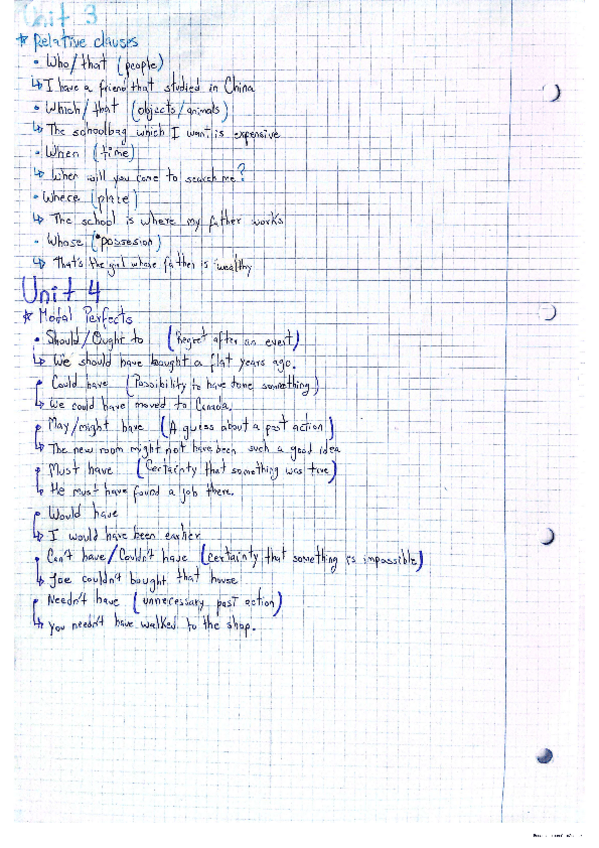 Unit 3
* Relative clauses
• Who/that (people)
↳ I have a friend that studied in China
• Which/that (objects/animals)
↳ The schoolbag which I want is expensive
• When (time)
↳ When will you come to search me?
• Where (place)
↳ The school is where my father works
• Whose (possesion)
↳ That's the girl whose father is wealthy
Unit 4
* Modal Perfects
• Should/Ought to (Regret after an event)
↳ We should have bought a flat years ago.
• Could have (Possibility to have done something)
↳ We could have moved to Canada.
• May/might have (A guess about a past action)
↳ The new room might not have been such a good idea
• Must have (Certainty that something was true)
↳ He must have found a job there.
• Would have
↳ I would have been earlier
• Can't have/Couldn't have (certainty that something is impossible)
↳ Joe couldn't bought that house
• Needn't have (unnecessary past action)
↳ You needn't have walked to the shop.